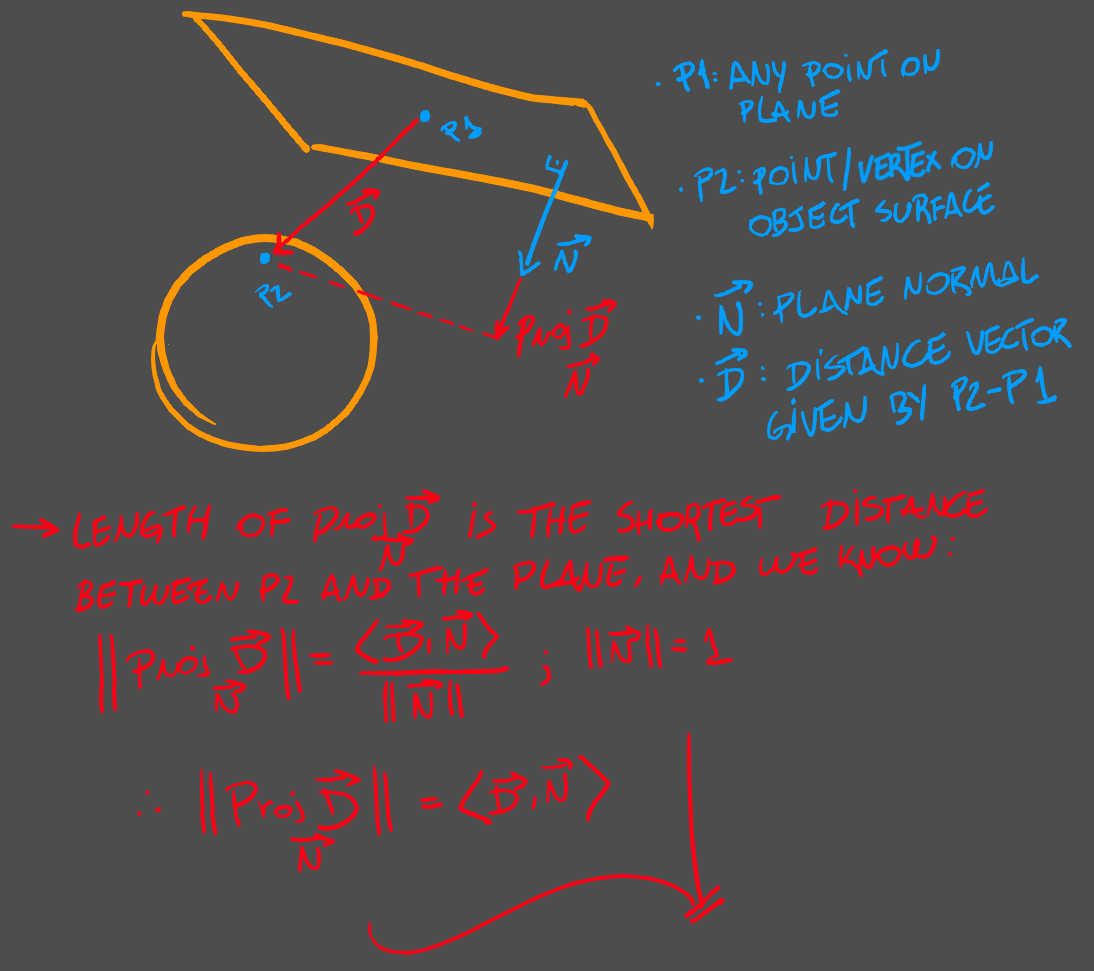 P1
P2
D⃗
N⃗
Proj D⃗
N⃗
· P1: ANY POINT ON
PLANE
· P2: POINT/VERTEX ON
OBJECT SURFACE
· N⃗: PLANE NORMAL
· D⃗: DISTANCE VECTOR
GIVEN BY P2-P1
→ LENGTH OF Proj D⃗ IS THE SHORTEST DISTANCE
N⃗
BETWEEN P2 AND THE PLANE, AND WE KNOW:
||Proj D⃗|| = ⟨D⃗, N⃗⟩ ; ||N⃗|| = 1
N⃗ ||N⃗||
∴ ||Proj D⃗|| = ⟨D⃗, N⃗⟩
N⃗